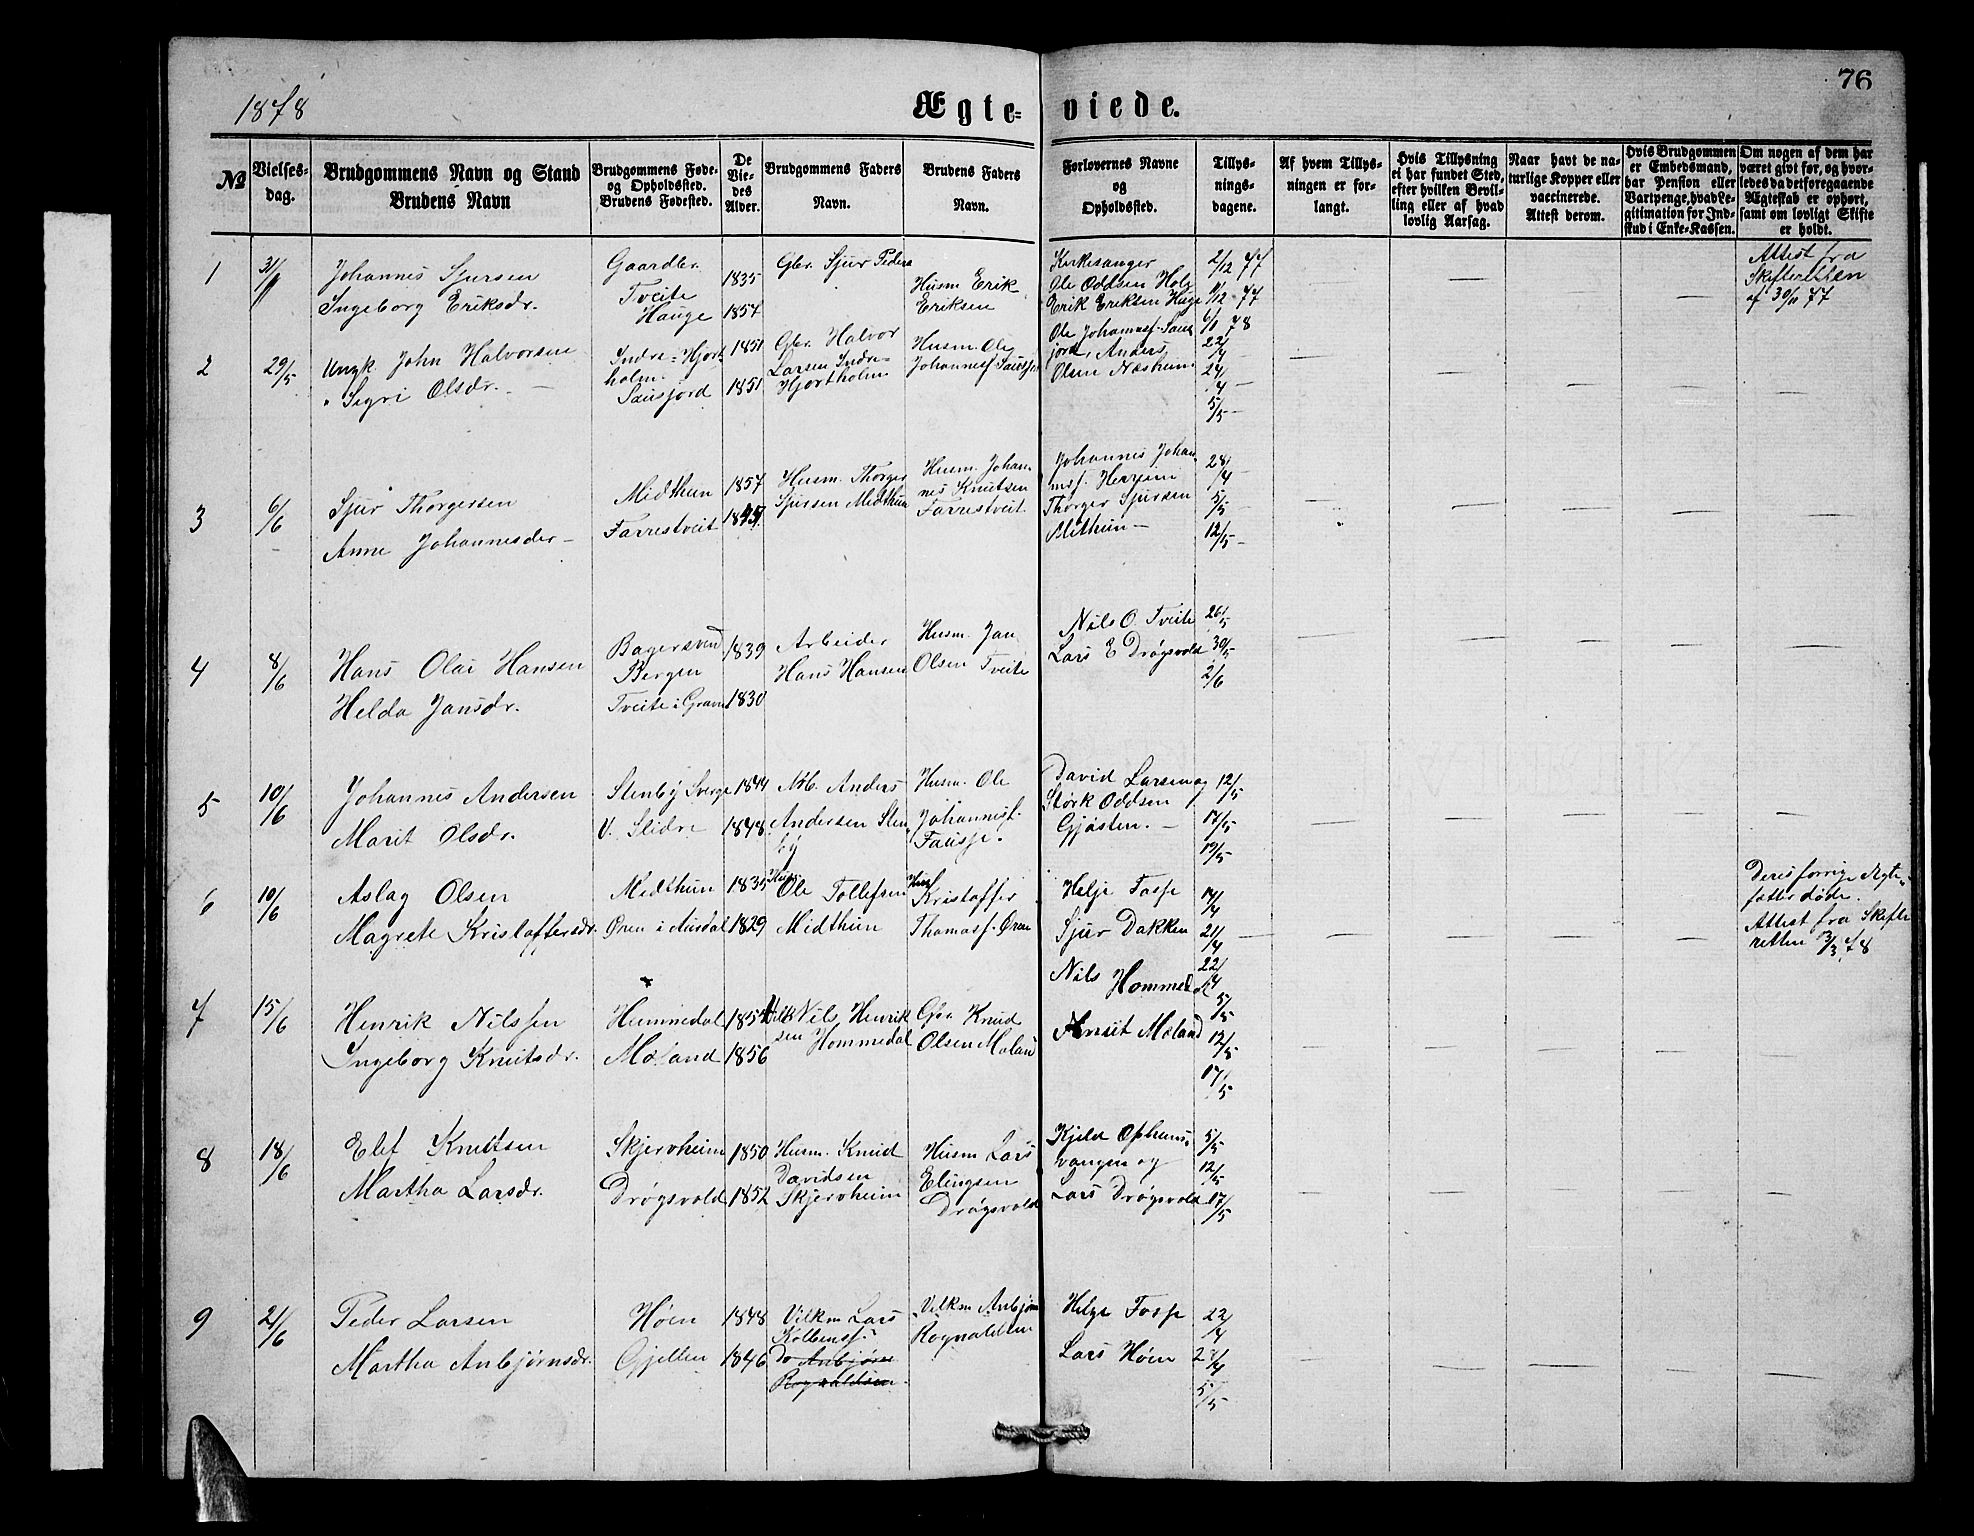 76
1878
Ægte- viede.
No
Vielses-
dag.
Brudgommens Navn og Stand
Brudens Navn
Brudgommens Føde-
og Opholdssted.
Brudens Fødested.
De
Vie-
des
Alder.
Brudgommens Faders
Navn.
Brudens Faders
Navn.
Forlovernes Navne
og
Opholdssted.
Tillys-
nings-
dagene.
Af hvem Tillys-
ningen er for-
langt.
Hvis Tillysning
ei har fundet Sted,
efter hvilken Bevil-
ling eller af hvad
lovlig Aarsag.
Naar havt de na-
turlige Kopper eller
vaccinerede.
Attest derom.
Hvis Brudgommen
er Embedsmand,
har Pension eller
Vartpenge, hvad Le-
gitimation for Ind-
skud i Enke-Kassen.
Om nogen af dem har
været givt før, og hvor-
ledes da det foregaaende
Ægteskab er ophørt,
samt om lovligt Skifte
er holdt.
1
Johannes Sjursen
Ingeborg Eriksdr.
Gaardbr.
Tveite
Hauge
1835
1857
Gbr. Sjur Peders
Husm Erik
Eriksen
Kirkesanger
Ole Oddsen Holz
Erik Eriksen Hage
2/12 77
9/12 77
6/1 78
Attest fra
Skifteretten
af 30/11 77
2
29/5
Ungk. John Halvorsen
" Sigri Olsdr. —
Indre-Hjort
holm.
Sausjord
1851
1851
Gbr. Halvor
Larsen Indre-
Hjortholm
Husm. Ole
Johannesf. Sausjor
Ole Johannesf. Saus
jord, Anders
Olsen Næsheim
22/4 —
24/4 —
5/5 —
3
6/6
Sjur Thorgersen
Anne Johannesder —
Midthun
Farrestveit
1857
Husm. Thorger
Sjursen Midthun
Husm. Johan-
nes Knutsen
Farrestveit
Johannes Johan-
nesf. Herheim
Thorger Sjursen
Midthun —
28/4
5/5 —
12/5 —
4
8/6
Hans Olai Hansen
Helda Jansdr.
Bagersvend
Bergen
Tveite i Graven
1839
1830
Arbeider
Hans Hansen
Husm. Jan
Olsen Tveite
Nils O. Tveite
Lars E Drøgsvold
26/5
30/5
2/6
5
10/6
Johannes Andersen
Marit Olsdr.
Stenby Sverge
V. Slidre
1844
1848
Anders
Andersen Sten-
by
Husm. Ole
Johannesf.
Fausse.
David Larsen og
Størk Oddsen
Gjøsten. —
12/5
17/5
19/5
6
10/6
Aslag Olsen
Magrete Kristoffersdr.
Midthun
Øren i Aurdal
1835
1829
Husm.
Ole Tollefsen
Midthun
Husm
Kristoffer
Thomasf. Øren
Helje Fosse
Sjur Dakken
14/4
21/4
22/4
Deres forrige Ægte-
fæller døde.
Attest fra Skifte
retten 3/3 78
7
15/6
Henrik Nilssen
Ingeborg Knutsdr.
Hummedal
Mæland
1854
1856
Nils Henrik
sen Hommedal
Gbr. Knud
Olsen Mæland
Nils Hommedal
Knut Mæland
5/5
12/5
17/5
8
18/6
Elef Knutsen
Martha Larsdr.
Skjerveheim
Drøgsvold
1850
1852
Husm. Knud
Davidsen
Skjervheim
Husm Lars
Elingsen
Drøgsvold
Kjeld Opheims-
vangen og
Lars Drøgsvold
5/5
12/5
17/5
9
21/6
Peder Larsen
Martha Anbjørnsdr.
Høen
Gjellen
1848
1846
Vilkm Lars
Kolbensf.
Do Anbjørn
Rognaldsen
Vilkm Anbjørn
Rognaldsen
Helge Fosse
Lars Høen
22/4
28/4
5/5